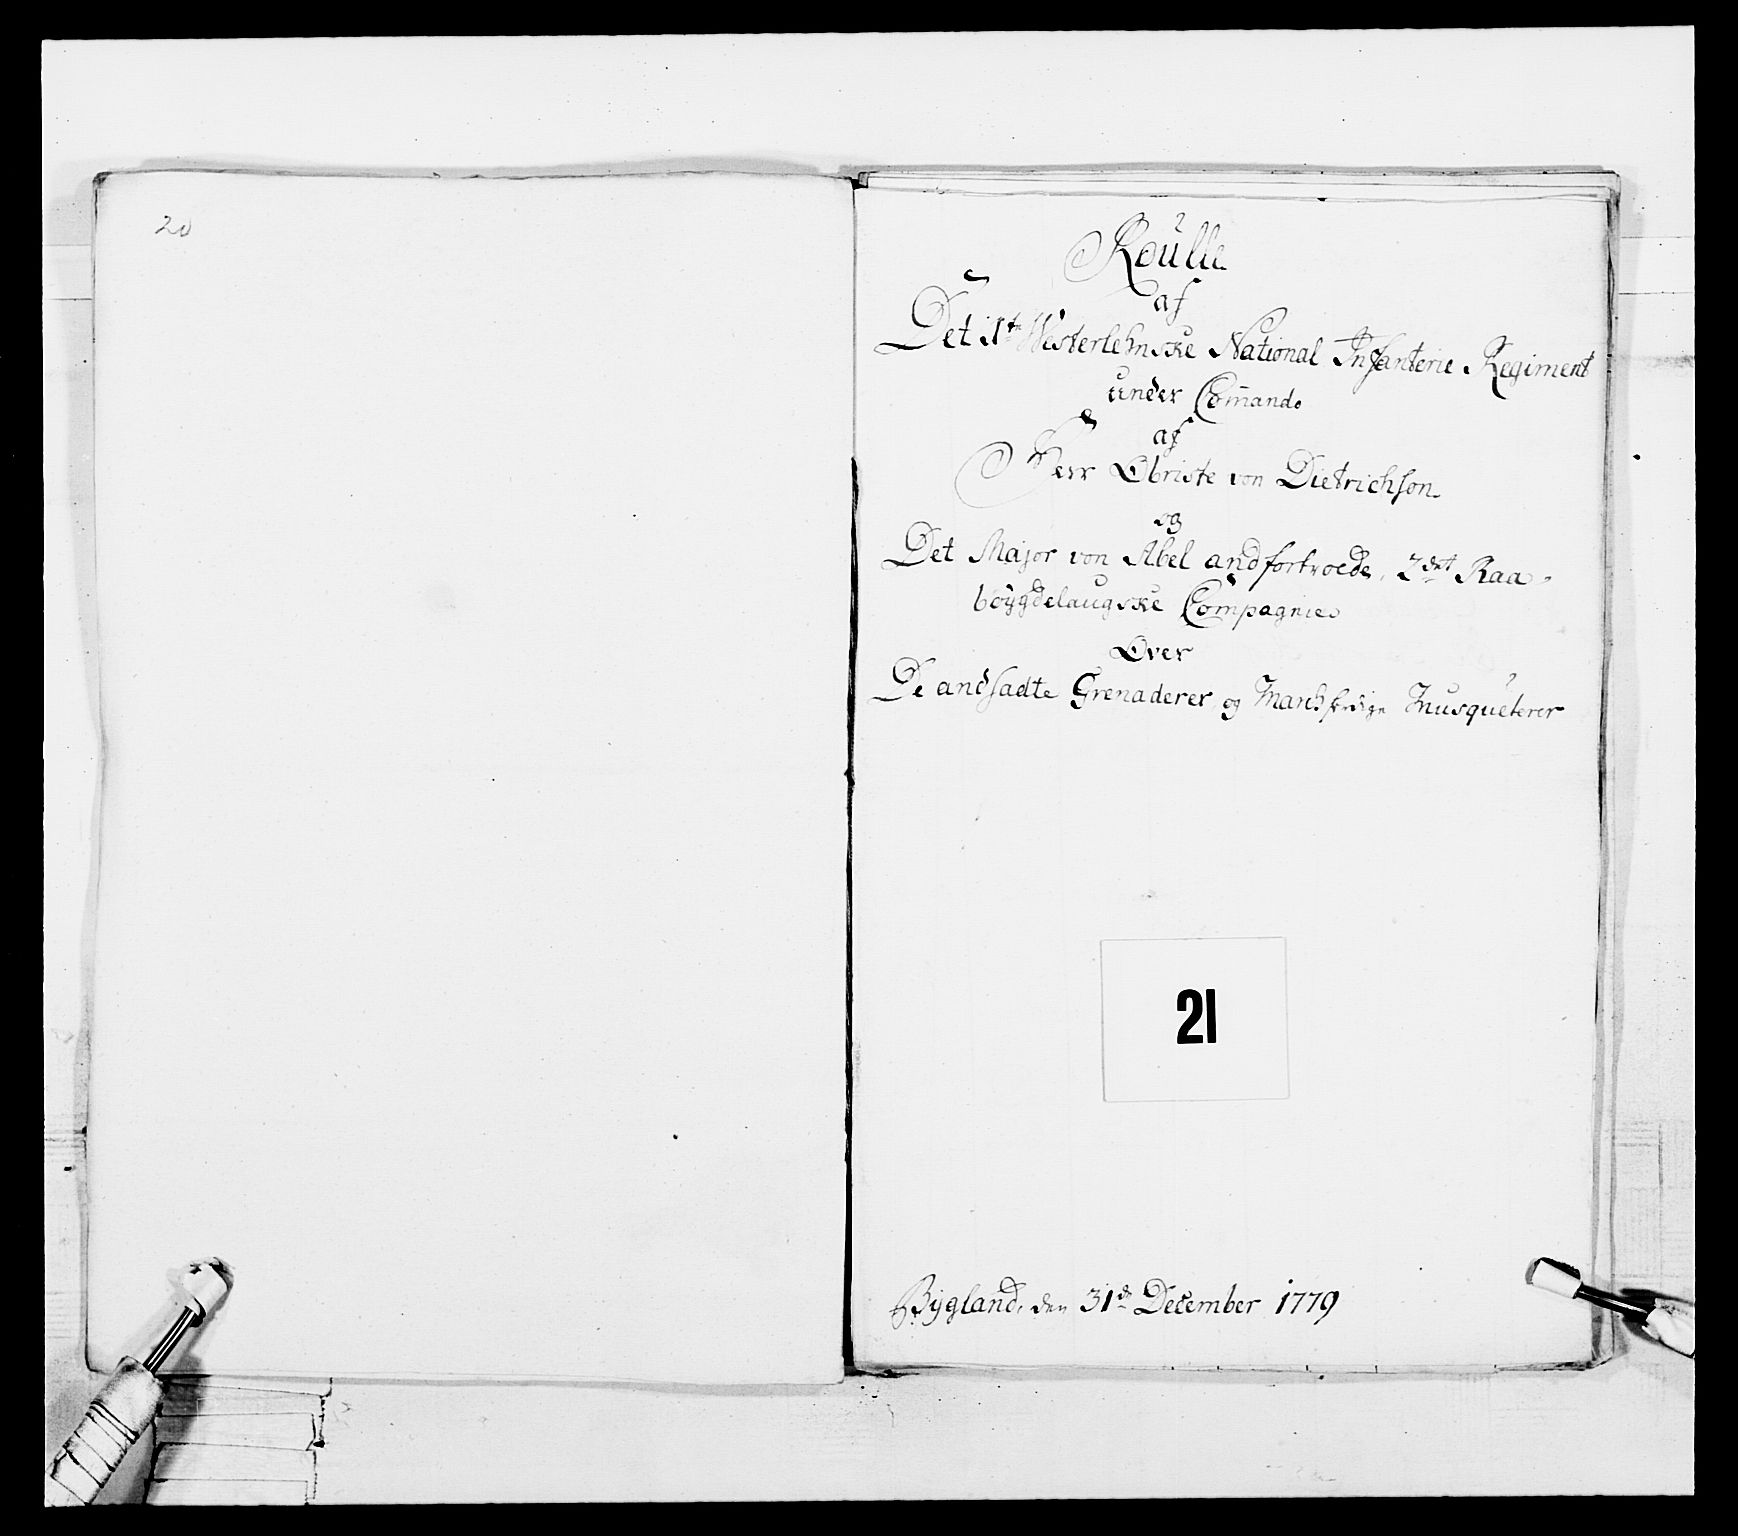 20
Roulle
af
Det 1te Westerlehnske National Infanterie Regiment
under Com̄ando
af
Herr Obriste von Dietrichson
og
Det Major von Abel andfortroede, 2det Raa-
böygdelaugske Compagnie
Over
De andsadte Grenaderer og Marchfærdige Musqueterer
21
Bÿgland, den 31de December 1779